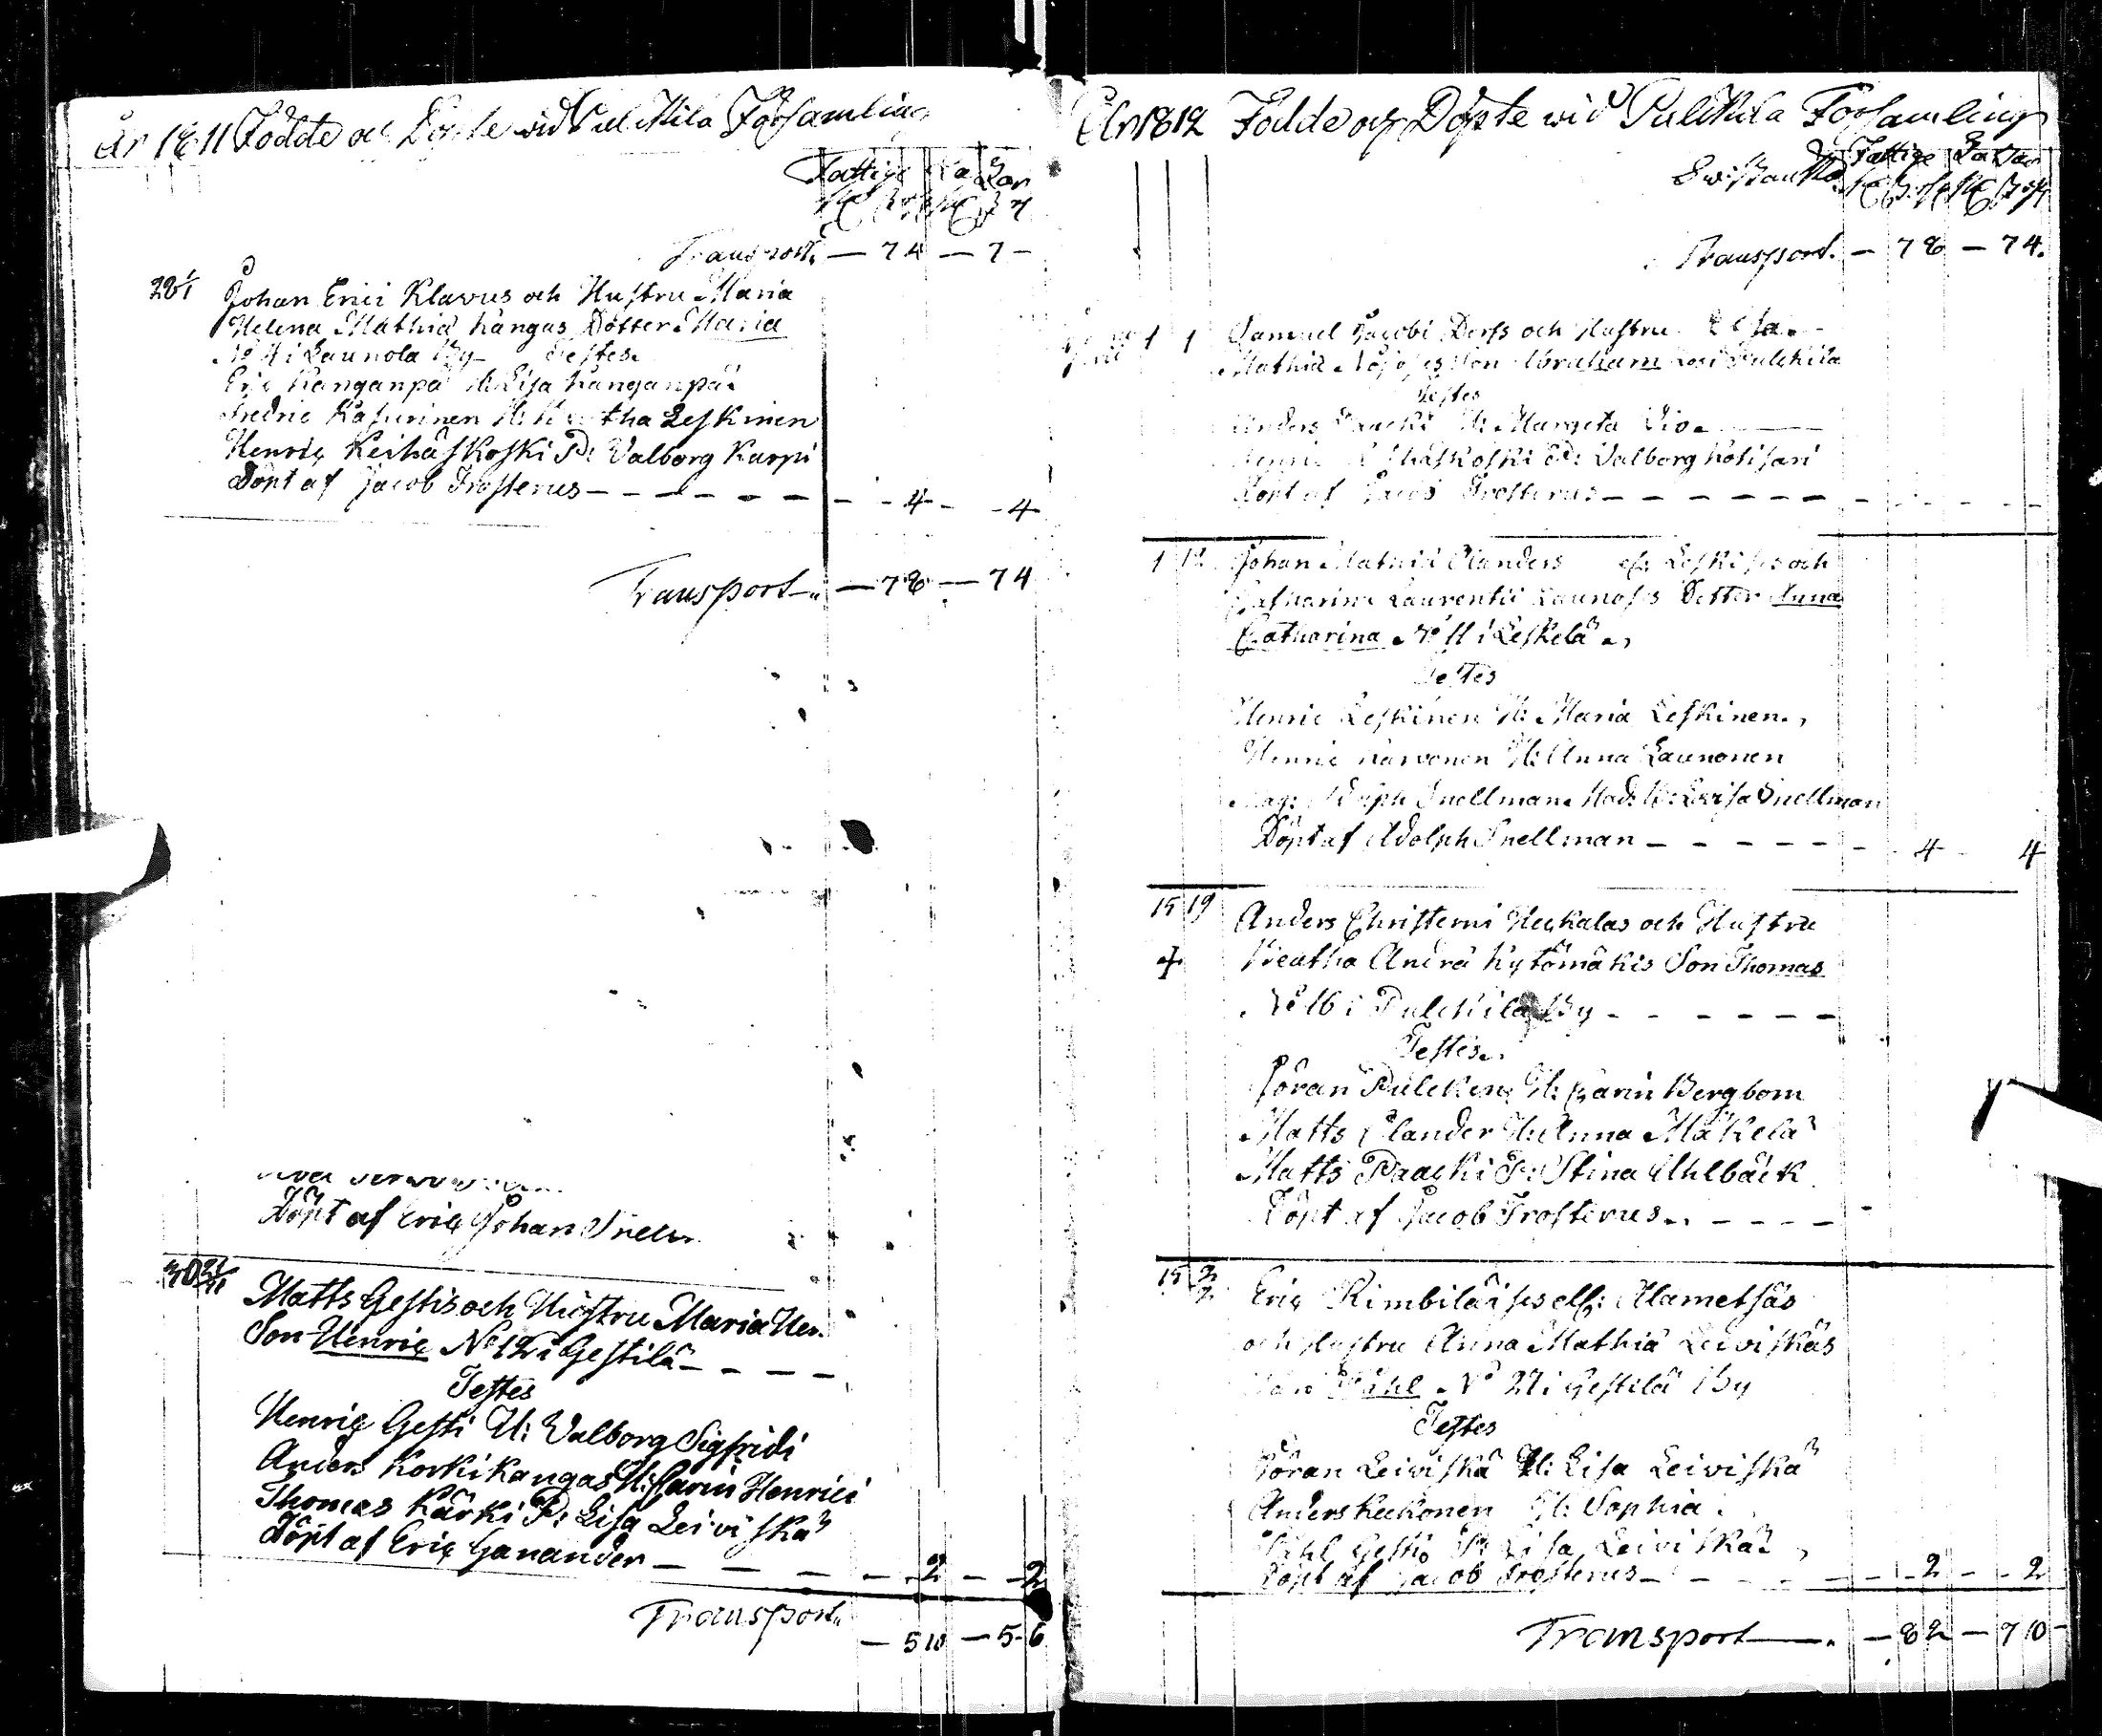 År 1811 Födde och Döpte wid Pulkkila Församling
Fattige Lådan
Transport. — 7 4 — 7 —
28 1/1 Johan Erici Klavus och Hustru Maria
Helena Mathiæ Kangas Dotter Maria
No 4 i Launola By — Testes.
Eric Kanganpä H: Lisa Kanganpää
Fredric Kafurinen H: tha Leskinen
Henric Keihäskoski P: Valborg Karpi
Döpt af Jacob Frosterus — — — — — — 4 — — 4
Transport — 7 8 — 7 4
Döpt af Eric Johan Snell
30 21/11 Matts Gestis och Hustru Maria Hen
Son Henric No 12 i Gestilä — — — —
Testes
Henric Gesti H: Valborg Sigfridi
Anders Korkikangas H: Carin Henrici
Thomas Kärki P: Lisa Leiviskä
Döpt af Eric Ganander — — — — — 2 — — 2
Transport
— 5 10 — 5 6
År 1812 Födde och Döpte wid Pulkkila Församling
Fattige Lådan
Transport. — 7 8 — 7 4.
1 1 Samuel Jacobi Dorfs och Hustru Lisa
Mathiæ Son Abraham Pulckila
Testes
Anders H: Margeta
Henric Keihäskoski P: Valborg Kotisari
Döpt af Jacob Frosterus — — — — — —
1 12 Johan Mathiæ Elanders Leskises och
Catharina Laurentii Launoses Dotter Anna
Catharina No 11 i Leskelä
Testes
Henric Leskinen H: Maria Leskinen.
Henric Karvonen H: Anna Launonen
Mag: Adolph Snellman Mad: H: Lovisa Snellman
Döpt af Adolph Snellman — — — — — — 4 4
15 19 Anders Christerni Heikalas och Hustru
+ Beatha Andræ Kytömäkis Son Thomas
No 16 i Pulckila By — — — — — —
Testes.
Jöran Pulckin H: Carin Bergbom
Matts Elander H: Anna Mäkelä
Matts Praaki P: Stina Ahlbäck
Döpt af Jacob Frosterus. — — — —
15 2/2 Eric Rimbiläises ell: Alametsäs
och Hustru Anna Mathiæ Leiviskäs
Son Påhl No 27 i Gestilä By
Testes
Jöran Leiviskä H: Lisa Leiviskä
Anders Keckonen H: Sophia
Påhl Gesti P: Lisa Leiviskä
Döpt af Jacob Frosterus — — — — — 2 — — 2
Transport — — 8 2 — 7 10 —